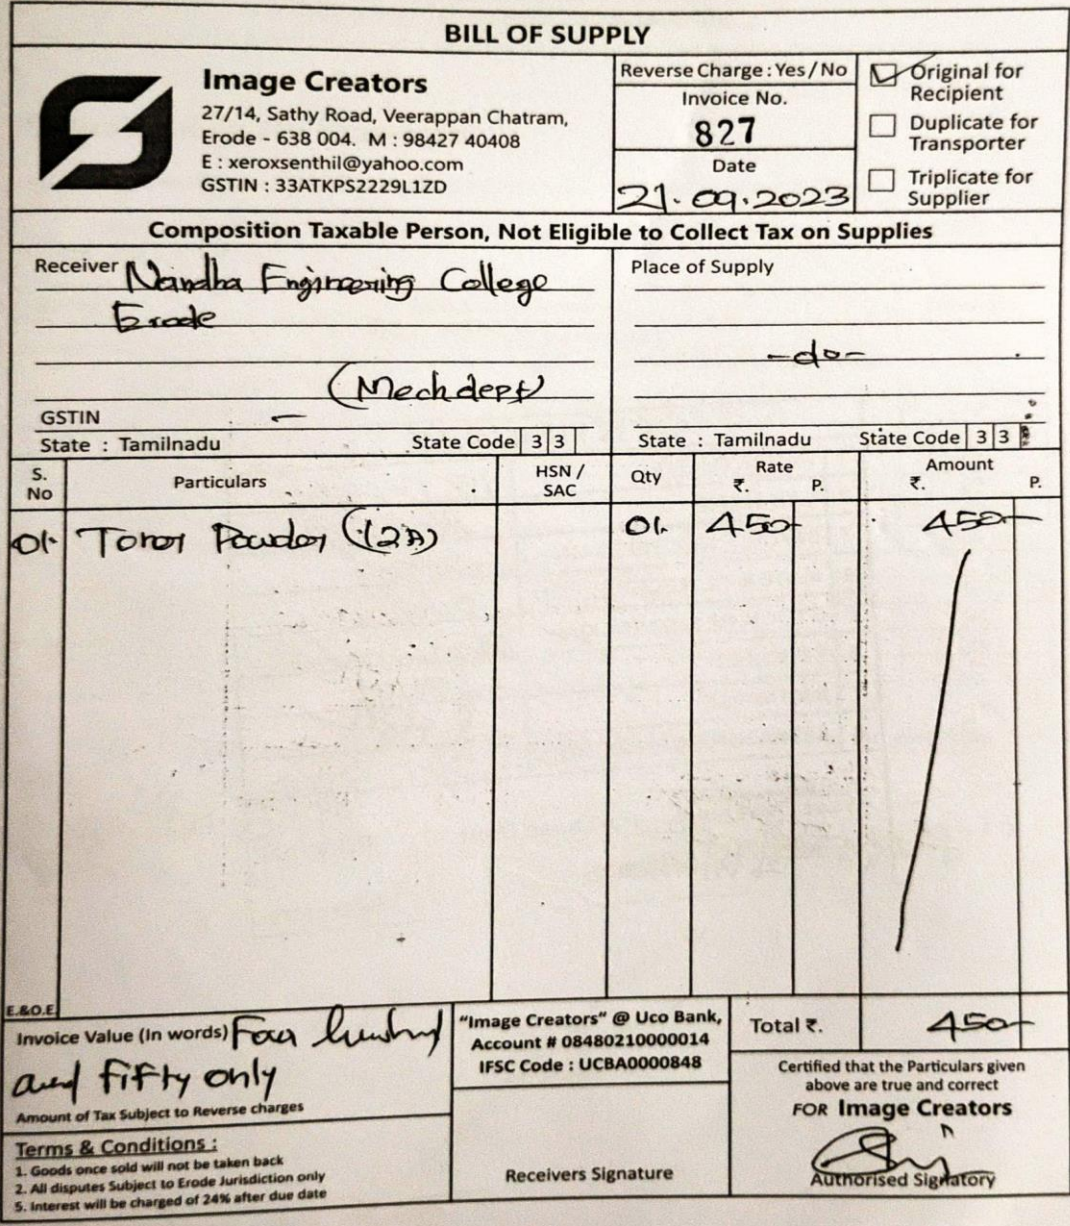 BILL OF SUPPLY
Image Creators
27/14, Sathy Road, Veerappan Chatram,
Erode - 638 004. M : 98427 40408
E : xeroxsenthil@yahoo.com
GSTIN : 33ATKPS2229L1ZD
Reverse Charge : Yes / No
Invoice No.
827
Date
21.09.2023
Original for
Recipient
Duplicate for
Transporter
Triplicate for
Supplier
Composition Taxable Person, Not Eligible to Collect Tax on Supplies
Receiver Nandha Engineering College
Erode
(Mech dept)
GSTIN –
State : Tamilnadu State Code 3 3
Place of Supply
-do-
State : Tamilnadu State Code 3 3
S. No Particulars HSN / SAC Qty Rate ₹. P. Amount ₹. P.
01. Toner Powder (12A) 01. 450- 450-
E.&O.E
Invoice Value (In words) Four hundred
and fifty only
Amount of Tax Subject to Reverse charges
Terms & Conditions :
1. Goods once sold will not be taken back
2. All disputes Subject to Erode Jurisdiction only
5. Interest will be charged of 24% after due date
"Image Creators" @ Uco Bank,
Account # 08480210000014
IFSC Code : UCBA0000848
Receivers Signature
Total ₹. 450-
Certified that the Particulars given
above are true and correct
FOR Image Creators
Authorised Signatory